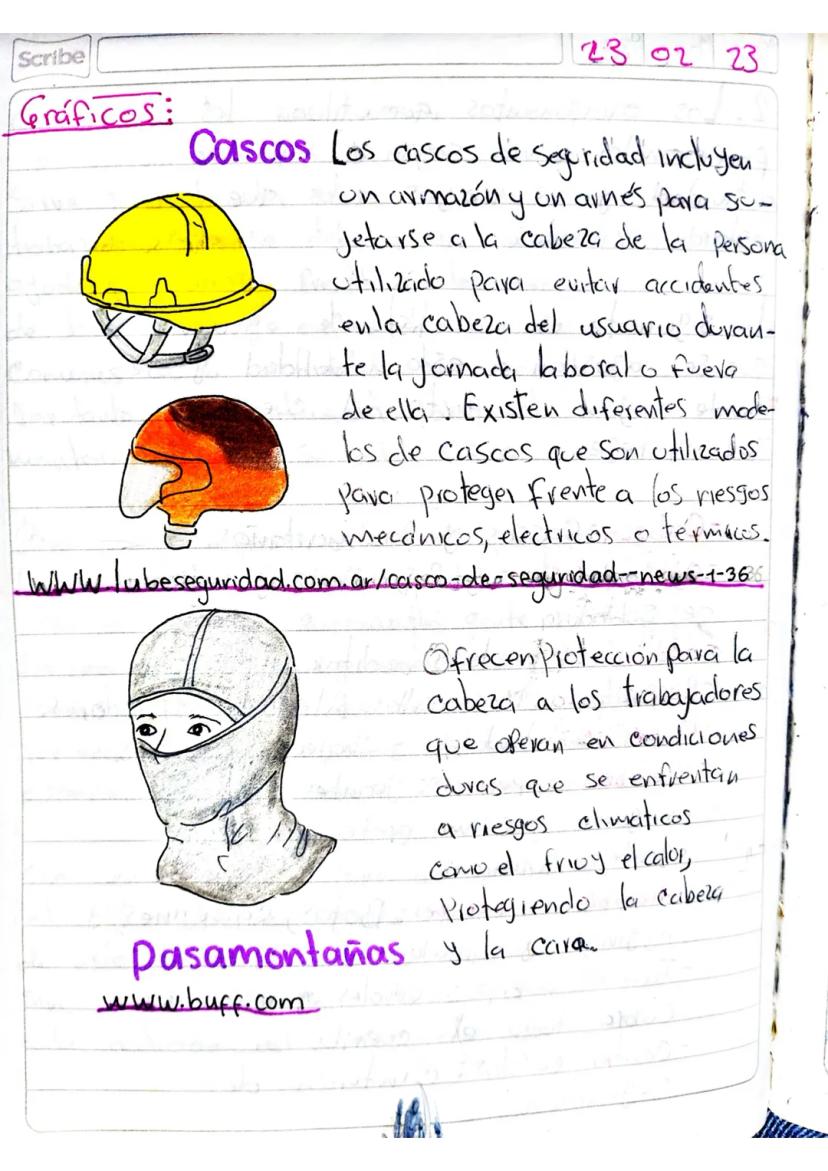 Scribe
23 02 23
Gráficos:
Cascos Los cascos de seguridad incluyen
un armazón y un arnés para su-
jetarse a la cabeza de la persona
utilizado para evitar accidentes
en la cabeza del usuario duran-
te la jornada laboral o fuera
de ella. Existen diferentes mode-
los de cascos que son utilizados
para proteger frente a los riesgos
mecánicos, electricos o térmicos.
www.lubeseguridad.com.ar/casco-de-seguridad--news-1-36
Ofrecen Protección para la
cabeza a los trabajadores
que operan en condiciones
duras que se enfrentan
a riesgos climaticos
como el frio y el calor,
Protegiendo la cabeza
y la cara.
Pasamontañas
www.buff.com